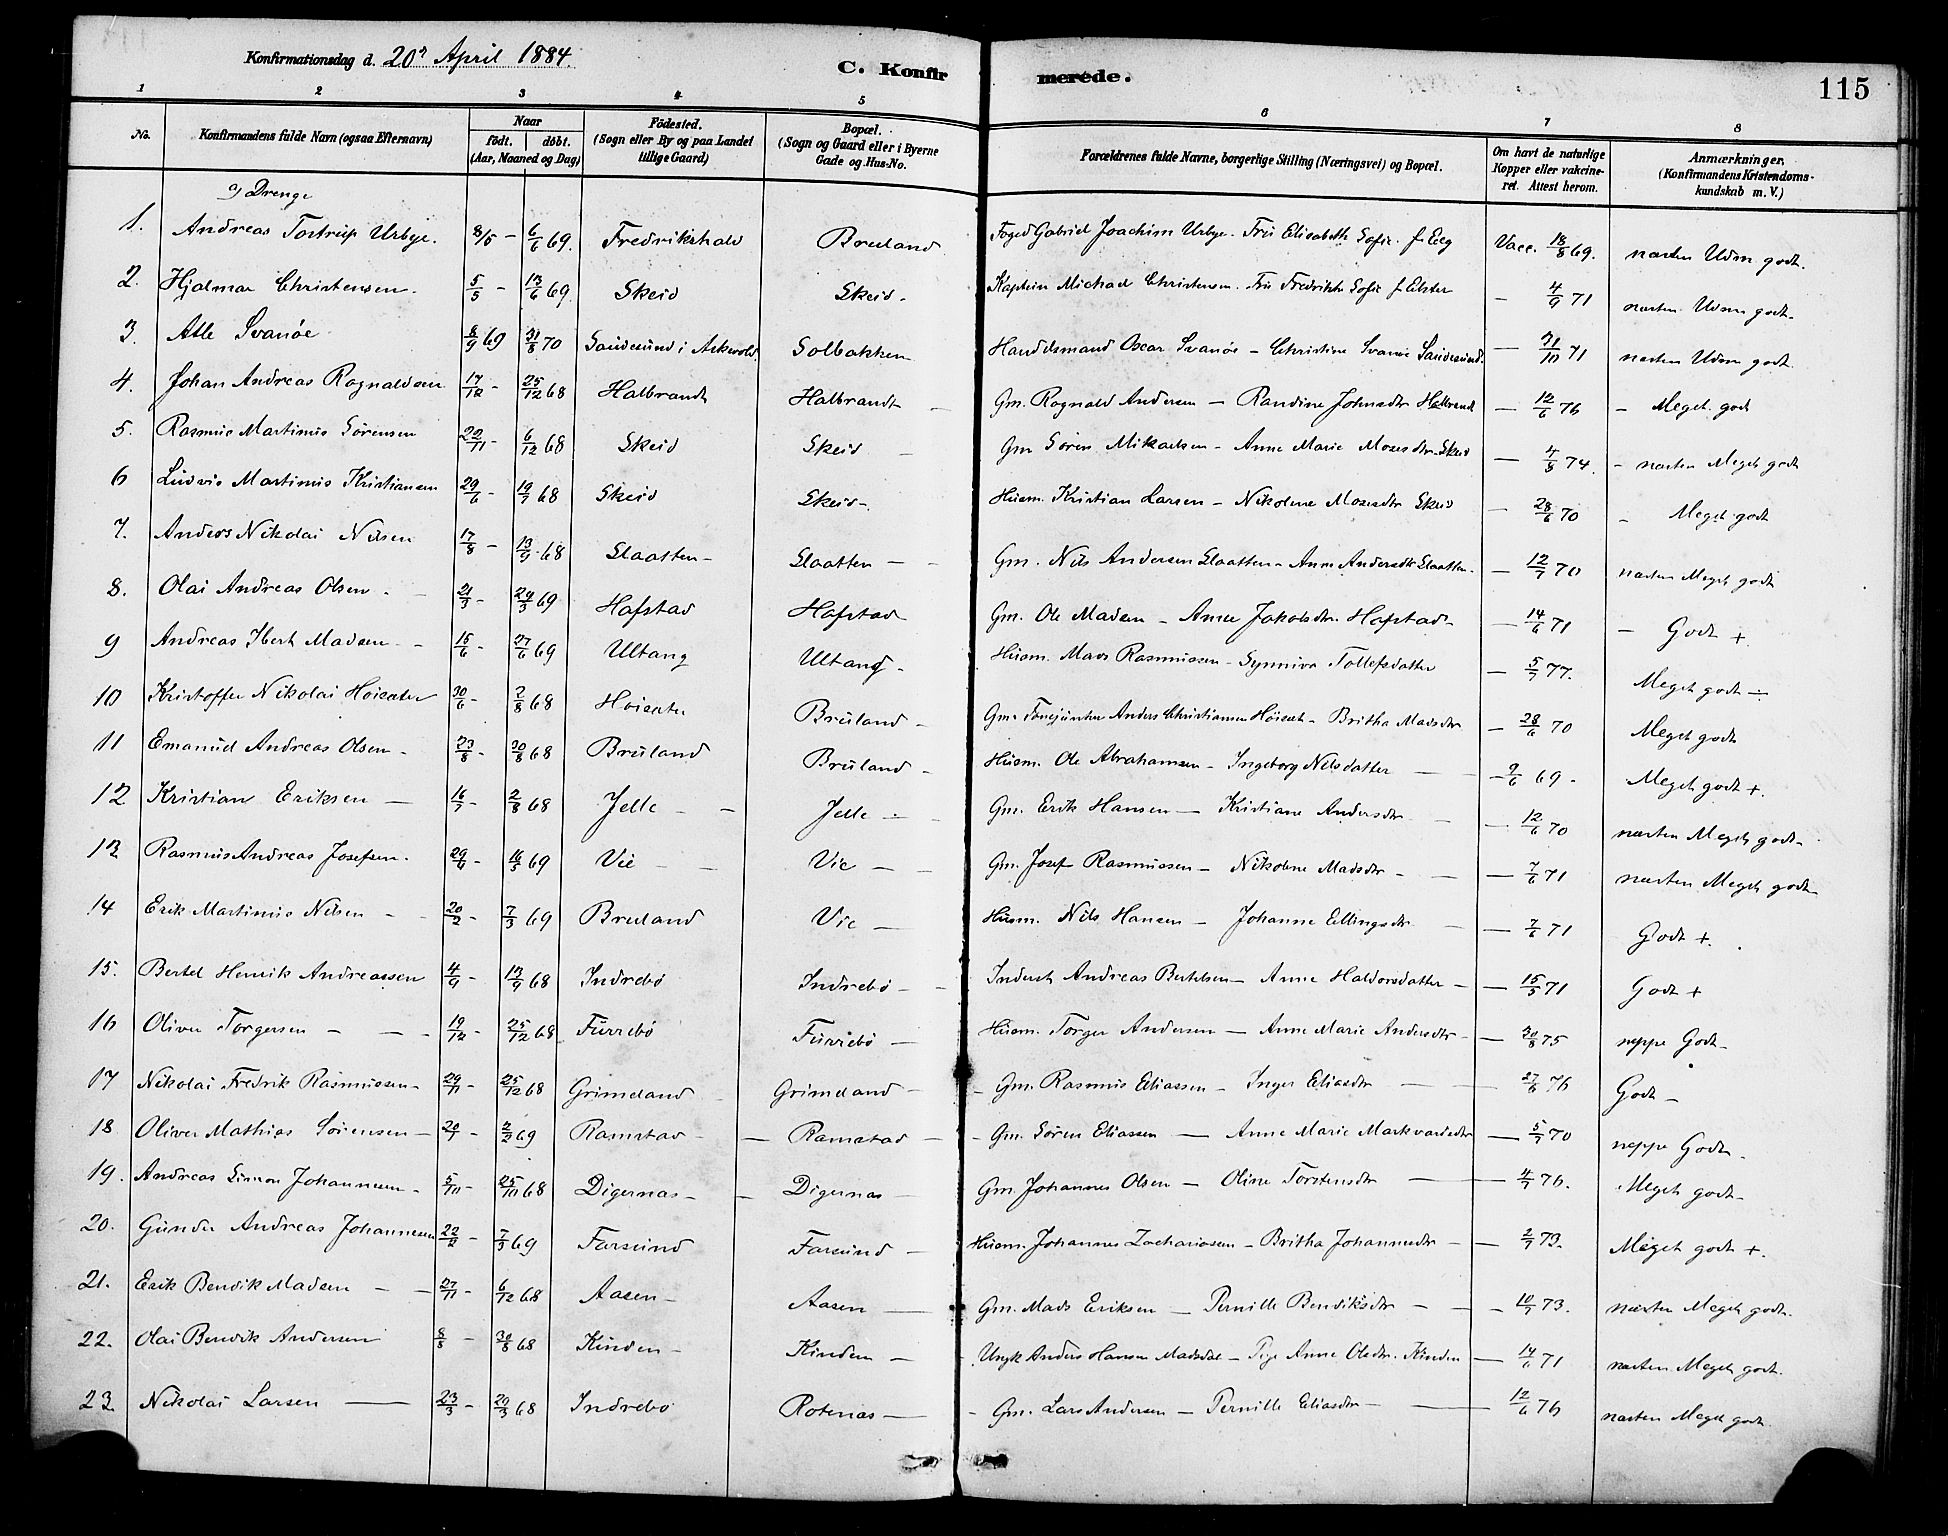 Konfirmationsdag d. 20' April 1884.
C. Konfirmerede.
115
1 2 3 4 5 6 7 8
No. Konfirmandens fulde Navn (ogsaa Efternavn) Naar født. døbt. (Aar, Maaned og Dag) Fødested. (Sogn eller By og paa Landet tillige Gaard) Bopæl. (Sogn og Gaard eller i Byerne Gade og Hus-No. Forældrenes fulde Navne, borgerlige Stilling (Næringsvei) og Bopæl. Om havt de naturlige Kopper eller vakcineret. Attest herom. Anmærkninger. (Konfirmandens Kristendomskundskab m. V.)
a) Drenge
1. Andreas Tostrup Urbye. 8/5 - 6/6 69. Fredrikshald Bruland Foged Gabriel Joachim Urbye. Fru Elisabeth Sofie f. Eeg Vacc. 18/8 69. næsten Udm godt.
2. Hjalmar Christensen. 5/5 - 13/6 69 Skeid Skeid. Kaptein Michael Christensen. Fru Fredrikke Sofie f. Elster - 4/9 71 næsten Udm godt.
3. Atle Svanöe 8/9 69 31/8 70 Saudesund i Askevold Solbakken Handelsmand Oscar Svanöe - Christine Svanöe Saudesund. - 31/10 71 næsten Udm godt.
4. Johan Andreas Ragnaldsen 17/12 - 25/12 68 Halbrandt Halbrandt Gm. Ragnald Andersen - Randine Johnsdtr Halbrandt - 12/6 76 - Meget godt
5. Rasmus Martinus Sörensen 22/11 - 6/12 68 Skeid Skeid - Gm Sören Mikaelsen - Anne Marie Mosesdtr. Skeid - 4/8 74. - næsten Meget godt
6 Ludvig Martinus Kristiansen 29/6 - 19/7 68 Skeid Skeid. Husm. Kristian Larsen - Nikoline Mosesdtr Skeid - 28/6 70 - Meget godt
7. Anders Nikolai Nilsen 17/8 - 13/9 68 Slaatten - Slaatten - Gm. Nils Andersen Slaatten - Anne Andersdtr Slaatten. - 12/7 70 næsten Meget godt
8. Olai Andreas Olsen. 21/3 - 29/3 69 Hafstad Hafstad Gm. Ole Madsen - Anne Jakobsdtr. Hafstad - 14/6 71 - Godt +
9 Andreas Ibert Madsen - 15/6 - 27/6 69 Ultang Ultang - Husm. Mads Rasmussen - Synniva Tollefsdatter - 5/7 77. Meget godt ÷
10 Kristoffer Nikolai Höisæter 30/6 - 2/8 68 Höisæter Bruland - Gm. Anders Christiansen Höisæt - Britha Madsdtr - 28/6 70 Meget godt
11 Emanuel Andreas Olsen - 23/8 - 30/8 68 Bruland Bruland - Husm. Ole Abrahamsen - Ingeborg Nilsdatter - 9/6 69 - Meget godt +.
12 Kristian Eriksen - 16/7 - 2/8 68 Jelle - Jelle - Gm. Erik Hansen - Kristiane Andersdtr - 12/6 70 næsten Meget godt.
13 Rasmus Andreas Josefsen. 29/4 - 16/5 69 Vie - Vie - Gm. Josef Rasmussen - Nikoline Madsdtr - 7/6 71 næsten Meget godt
14 Erik Martinus Nilsen - 20/2 - 7/3 69 Bruland Vie - Husm. Nils Hansen - Johanne Ellingsdtr - 7/6 71 Godt +.
15. Bertel Henrik Andreassen 4/9 - 13/9 68 Indrebö Indrebö - Inderst Andreas Bertelsen - Anne Haldorsdatter - 15/5 71 Godt +
16 Oliver Torgersen - 19/12 - 25/12 68 Furrebö Furrebö - Husm. Torger Andersen - Anne Marie Andersdtr - 30/8 75 neppe Godt -
17 Nikolai Fredrik Rasmussen - 29/11 - 25/12 68 Grimeland Grimeland - Gm. Rasmus Eliassen - Inger Eliasdtr - 27/6 76 Godt -
18 Oliver Mathias Sörensen - 20/1 - 2/2 69 Ramstad - Ramstad - Gm. Sören Eliassen - Anne Marie Markvardsdtr - 5/7 70 neppe Godt.
19. Andreas Simon Johannesen - 5/11 - 25/11 68 Digernæs - Digernæs Gm. Johannes Olsen - Oline Torstensdtr - 4/7 76. Meget godt -
20. Gunder Andreas Johannesen 22/2 - 7/3 69 Farsund Farsund - Husm. Johannes Zachariasen - Britha Johannesdtr - 2/7 73. Meget godt +.
21. Erik Bendik Madsen - 27/11 - 6/12 68 Aasen - Aasen - Gm. Mads Eriksen - Pernille Bendiksdtr - 10/7 73. næsten Meget godt.
22. Olai Bendik Andersen 8/8 - 30/8 68 Kinden - Kinden - Ungk Anders Hansen Madsdal - Pige Anne Olsdtr. Kinden - 14/6 71 næsten Meget godt.
23. Nikolai Larsen - 23/3 - 29/3 68 Indrebö Rotenæs - Gm. Lars Andersen - Pernille Eliasdtr - 12/6 76 næsten Meget godt